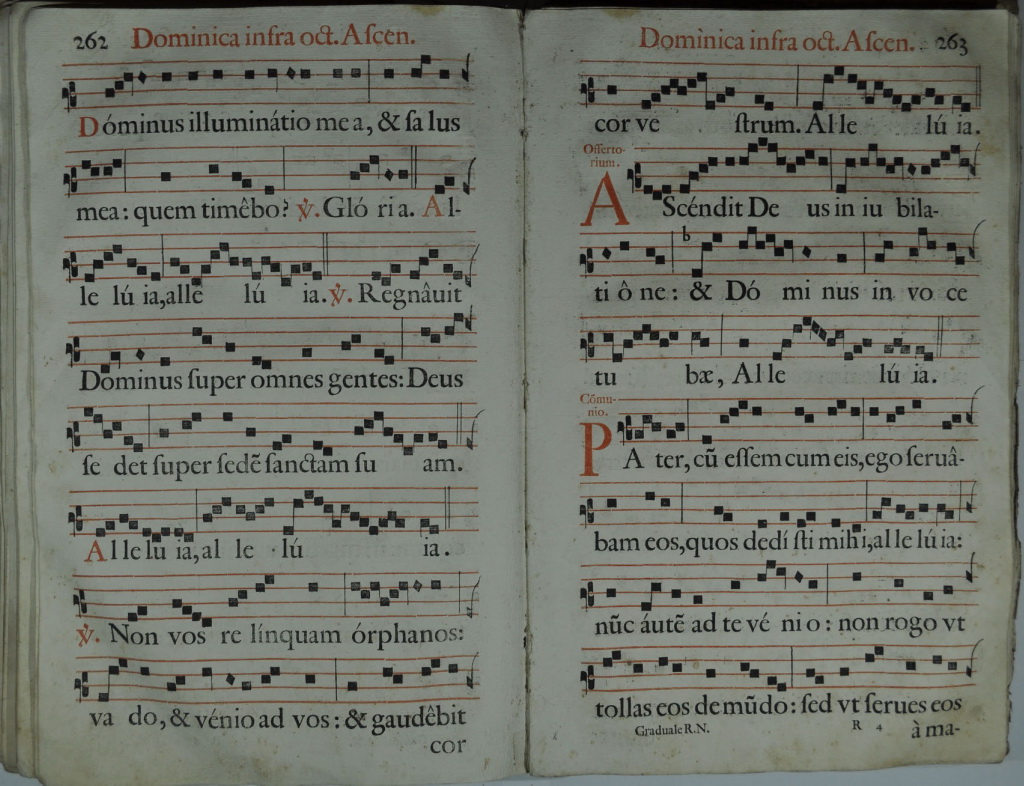 262 Dominica infra oct. Ascen.
Dóminus illuminátio me a, & sa lus
mea: quem timêbo? ℣. Gló ri a. Al-
le lú ia, alle lú ia. ℣. Regnâuit
Dominus super omnes gentes: Deus
se det super sedẽ sanctam su am.
Al le lu ia, al le lú ia.
℣. Non vos re línquam órphanos:
va do, & vénio ad vos: & gaudêbit
cor
Dominica infra oct. Ascen. 263
cor ve strum. Al le lú ia.
Offerto-
rium.
AScéndit De us in iu bila-
ti ô ne: & Dó mi nus in vo ce
tu bæ, Al le lú ia.
Cõmu-
nio.
PA ter, cũ essem cum eis, ego seruâ-
bam eos, quos dedí sti mihi, al le lú ia:
nũc áutẽ ad te vé ni o: non rogo vt
tollas eos de mũdo: sed vt serues eos
Graduale R.N. R 4 à ma-